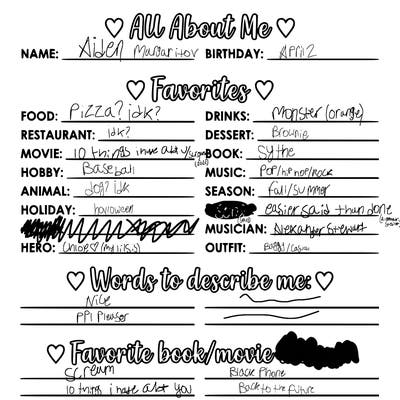 All About Me
NAME: Aiden Margaritov BIRTHDAY: April 2
Favorites
FOOD: Pizza? idk? DRINKS: Monster (orange)
RESTAURANT: idk? DESSERT: Brownie
MOVIE: 10 things i hate abt y/scream BOOK: Sythe
HOBBY: Baseball MUSIC: Pop/hiphop/rock
ANIMAL: dog? idk SEASON: fall/summer
HOLIDAY: halloween easier said than done
MUSICIAN: Alexander Stewart
HERO: Chloe (my lil sis) OUTFIT: Baggy/casual
Words to describe me:
Nice
ppl pleaser
Favorite book/movie
Scream Black Phone
10 things i hate abt you Back to the future